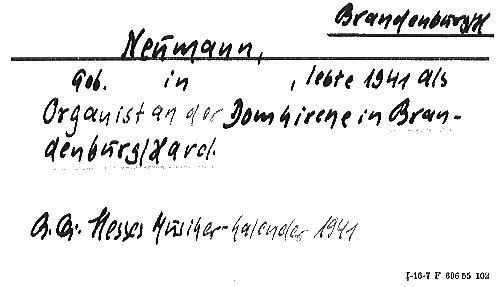 Brandenburg/H
Neumann,
Geb. in , lebte 1941 als
Organist an der Domkirche in Bran-
denburg/Havel.
Hesses Musiker-Kalender 1941
I-16-7 F 696 55 102